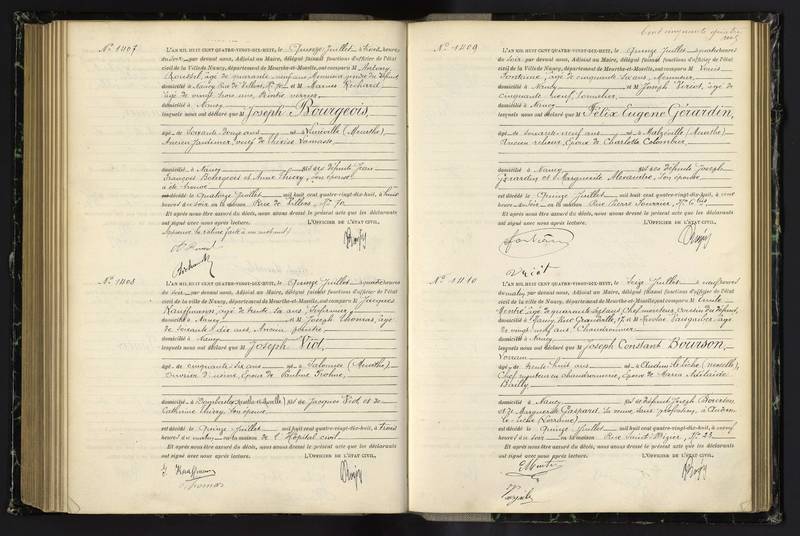 N° 1407
L'AN MIL HUIT CENT QUATRE-VINGT-DIX-HUIT, le Quinze Juillet à trois heures
du soir par devant nous, Adjoint au Maire, délégué faisant fonctions d'officier de l'état
civil de la Ville de Nancy, département de Meurthe-et-Moselle, ont comparu M Antony
Roussel, âgé de quarante neuf ans, Menuisier, gendre du défunt
domicilié à Nancy, Rue de Villers, N° 70 et M Marius Richard,
âgé de vingt trois ans, Peintre verrier
domicilié à Nancy
lesquels nous ont déclaré que M Joseph Bourgeois,
âgé de soixante douze ans né à Lunéville (Meurthe),
Ancien Jardinier, veuf de Thérèse
domicilié à Nancy fils des défunts Jean
François Bourgeois et Anne Thiéry, son épouse
est décédé le Quatorze Juillet mil huit cent quatre-vingt-dix-huit, à huit
heures du soir en la maison Rue de Villers, N° 70
Et après nous être assuré du décès, nous avons dressé le présent acte que les déclarants
ont signé avec nous après lecture. L'OFFICIER DE L'ÉTAT CIVIL,
N° 1408
L'AN MIL HUIT CENT QUATRE-VINGT-DIX-HUIT, le Quinze Juillet à quatre heures
du soir par devant nous, Adjoint au Maire, délégué faisant fonctions d'officier de l'état
civil de la Ville de Nancy, département de Meurthe-et-Moselle, ont comparu M Jacques
Kauffmann, âgé de trente six ans, Infirmier
domicilié à Nancy et M Joseph Thomas, âgé
de soixante dix ans, Ancien peintre
domicilié à Nancy
lesquels nous ont déclaré que M Joseph Viot,
âgé de cinquante six ans né à Salonnes (Meurthe),
Ouvrier d'usine, époux de Pauline
domicilié à Dombasle (Meurthe-et-Moselle) fils de Jacques Viot et de
Catherine Thiéry, son épouse
est décédé le Quinze Juillet mil huit cent quatre-vingt-dix-huit, à trois
heures du matin en la maison de l'Hôpital civil
Et après nous être assuré du décès, nous avons dressé le présent acte que les déclarants
ont signé avec nous après lecture. L'OFFICIER DE L'ÉTAT CIVIL,
J. Kauffmann
Thomas
Cent cinquante quatre
N° 1409
L'AN MIL HUIT CENT QUATRE-VINGT-DIX-HUIT, le Quinze Juillet à quatre heures
du soir par devant nous, Adjoint au Maire, délégué faisant fonctions d'officier de l'état
civil de la Ville de Nancy, département de Meurthe-et-Moselle, ont comparu M Louis
Fontaine, âgé de cinquante six ans, Menuisier
domicilié à Nancy et M Joseph Viriot, âgé de
cinquante neuf
domicilié à Nancy
lesquels nous ont déclaré que M Félix Eugène Gérardin,
âgé de soixante neuf ans né à Malzéville (Meurthe)
Ancien relieur, époux de Charlotte Colombier
domicilié à Nancy fils des défunts Joseph
Gérardin et Marguerite Alexandre, son épouse
est décédé le Quinze Juillet mil huit cent quatre-vingt-dix-huit, à
heures du soir en la maison Rue Pierre Fourrier, N° 6 bis
Et après nous être assuré du décès, nous avons dressé le présent acte que les déclarants
ont signé avec nous après lecture. L'OFFICIER DE L'ÉTAT CIVIL,
Fontaine
Viriot
N° 1410
L'AN MIL HUIT CENT QUATRE-VINGT-DIX-HUIT, le Seize Juillet à neuf heures
du matin par devant nous, Adjoint au Maire, délégué faisant fonctions d'officier de l'état
civil de la ville de Nancy, département de Meurthe-et-Moselle, ont comparu M Emile
âgé de quarante sept ans, Chef monteur, cousin du défunt,
domicilié à Nancy, Rue Grandville, 17, et M Nicolas âgé
de vingt neuf ans, Chaudronnier
domicilié à Nancy
lesquels nous ont déclaré que M Joseph Constant Bourson,
âgé de trente huit ans né à Audun-le-Tiche (Moselle),
Chef monteur en chaudronnerie, époux de Maria Adélaïde
Bailly
domicilié à Nancy fils de défunt Joseph Bourson,
et de Marguerite Gaspard, sa veuve, sans profession, à Audun-
le-Tiche (Lorraine)
est décédé le Quinze Juillet mil huit cent quatre-vingt-dix-huit, à neuf
heures du soir en la maison Rue Saint-Dizier, N° 23
Et après nous être assuré du décès, nous avons dressé le présent acte que les déclarants
ont signé avec nous après lecture. L'OFFICIER DE L'ÉTAT CIVIL,